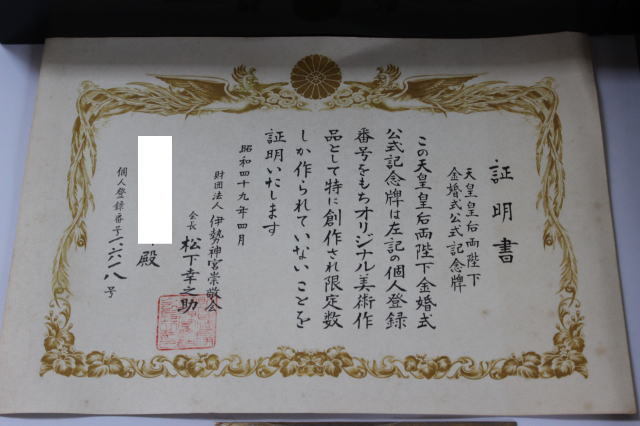 証明書
天皇皇后両陛下
金婚式公式記念牌
この天皇皇后両陛下金婚式
公式記念牌は左記の個人登録
番号をもちオリジナル美術作
品として特に創作され限定数
しか作られていないことを
証明いたします
昭和四十九年四月
財団法人 伊勢神宮崇敬会
会長 松下幸之助
殿
個人登録番号 一六六一八号